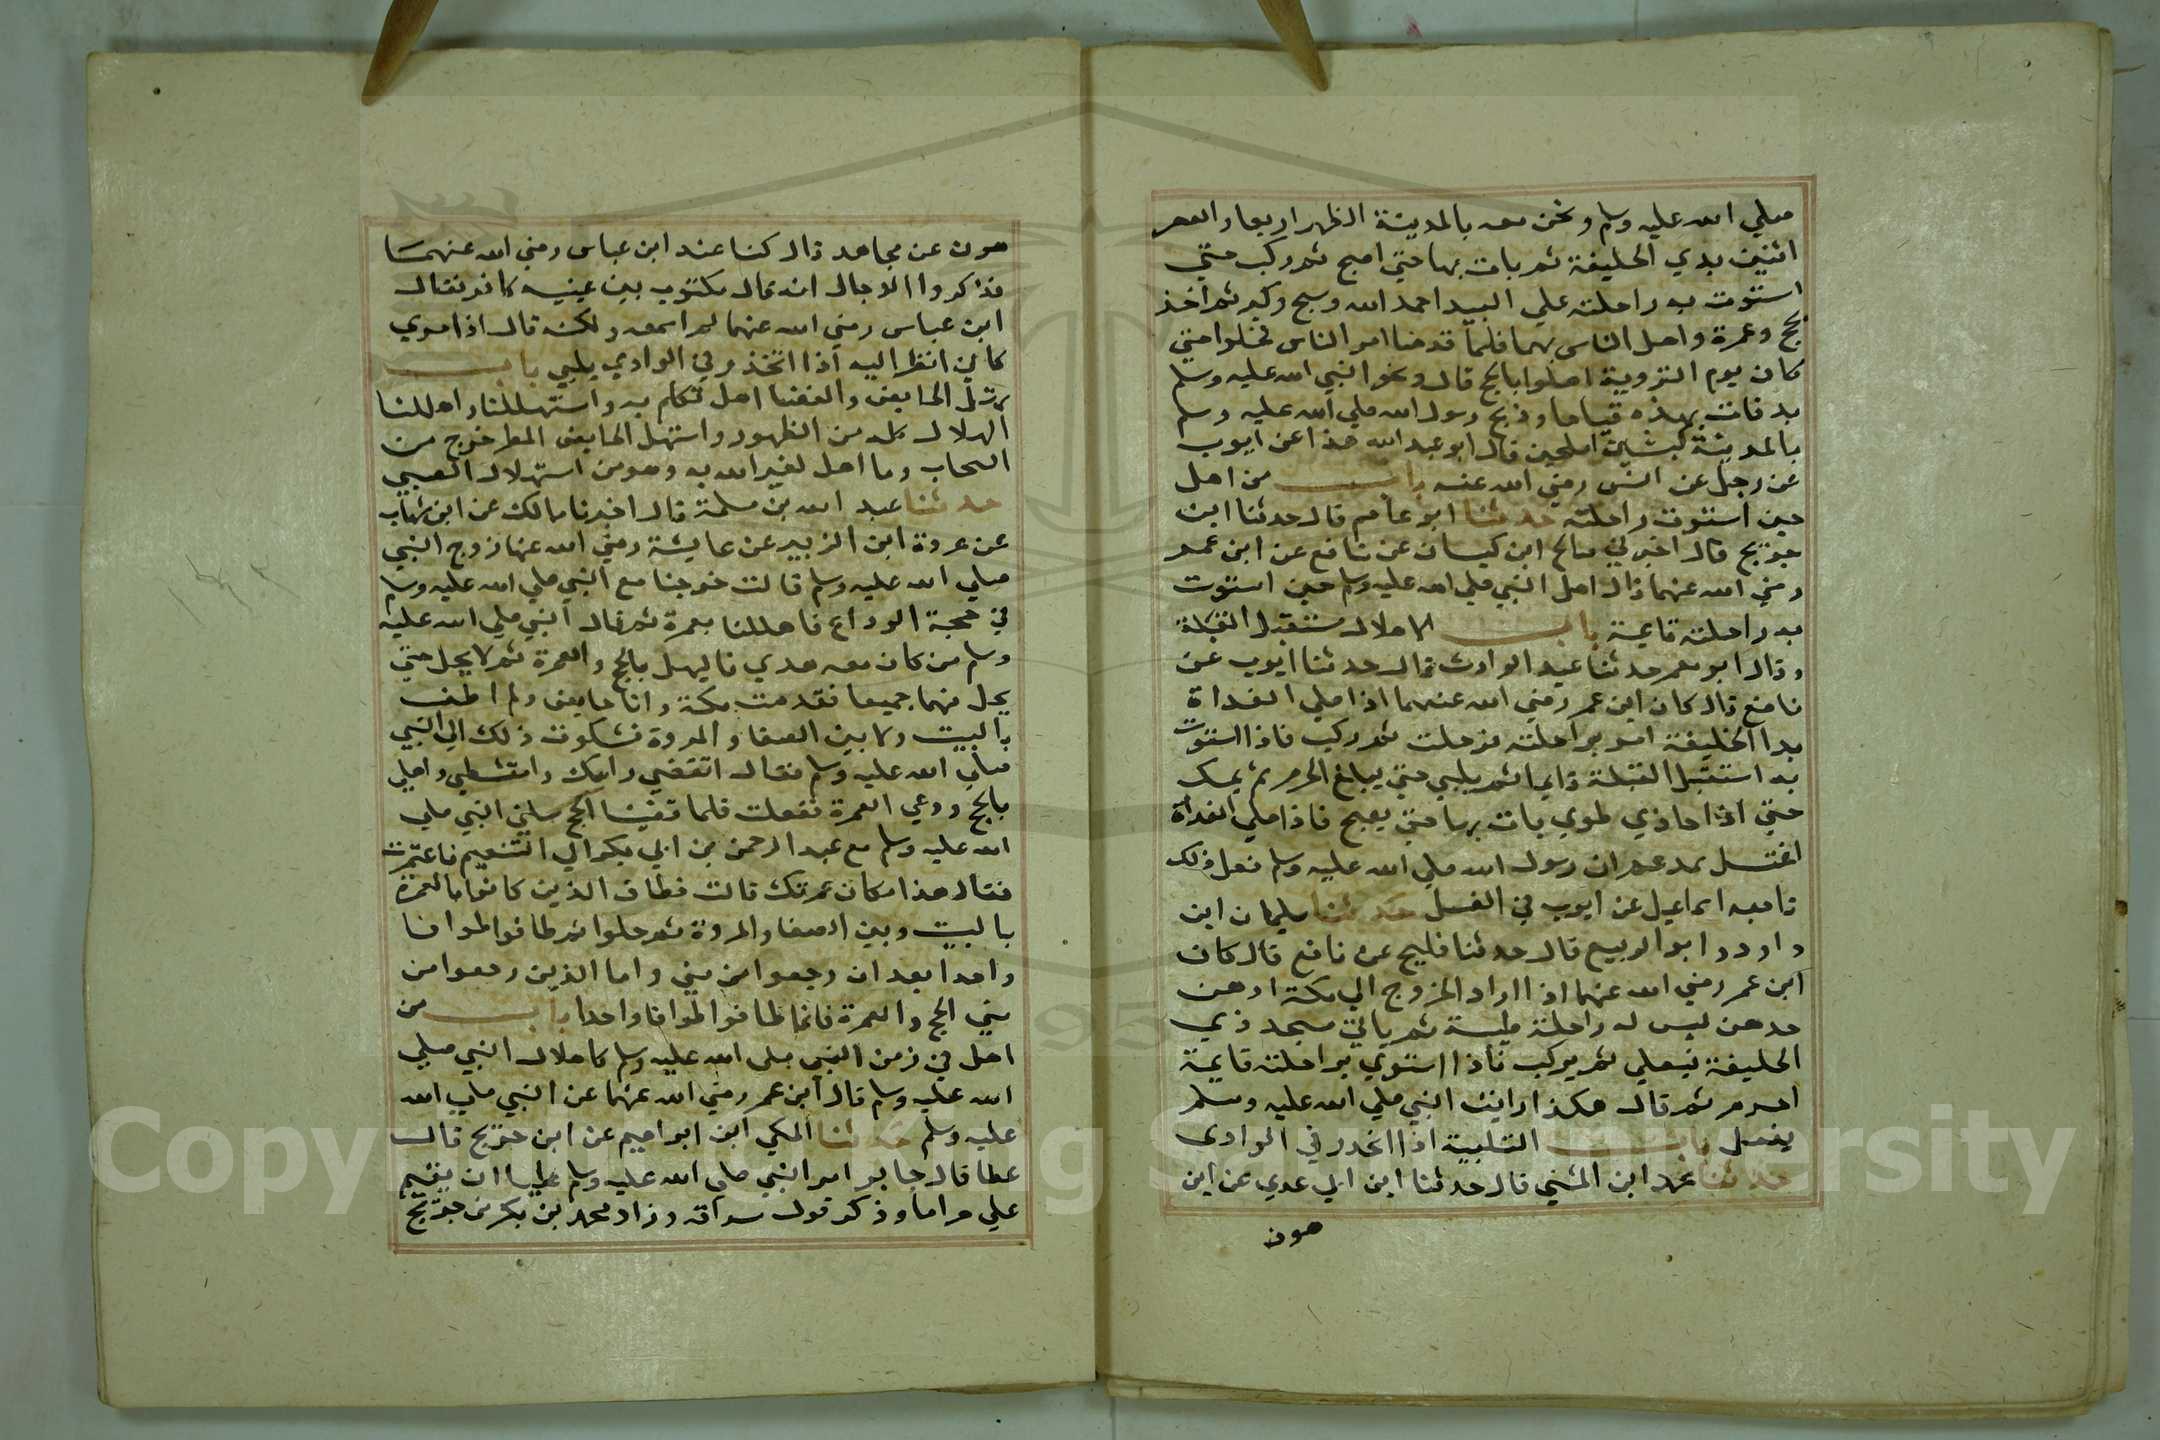 صلي الله عليه وسلم ونحن معه بالمدينة الظهر اربعا والعصر
اثنين بذي الحليفة ثم بات بها حتي اصبح ثم ركب حتي
استوت به راحلته علي البيدا حمد الله وسبح وكبر ثم اخذ
بحج وعمرة واهل الناس بهما فلما قدمنا امر الناس فحلوا حتي
كان يوم التروية اهلوا بالحج قال ونحر النبي الله عليه وسلم
بدنات بهذه قياما وذبح رسول الله صلي الله عليه وسلم
بالمدينة كبشين املحين قال ابو عبد الله هذا عن ايوب
عن رجل عن انس رضي الله عنه باب من اهل
حين استوت راحلته حدثنا ابو عاصم قال حدثنا ابن
جريج قال اخبرني صالح ابن كيسان عن نافع عن ابن عمر
رضي الله عنهما قال اهل النبي صلي الله عليه وسلم حين استوت
به راحلته قايمة باب الاهلال مستقبل القبلة
وقال ابو معمر حدثنا عبد الوارث قال حدثنا ايوب عن
نافع قال كان ابن عمر رضي الله عنهما اذا صلي الغداة
بذا الحليفة امر براحلته فرحلت ثم ركب فاذا استوت
به استقبل القبلة قايما ثم يلبي حتي يبلغ الحرم ثم يمسك
حتي اذا حاذي طوي بات بها حتي يصبح فاذا صلي الغداة
اغتسل وزعم ان رسول الله صلي الله عليه وسلم فعل ذلك
تابعه اسماعيل عن ايوب في الغسل حدثنا سليمان ابن
داود ابو الربيع قال حدثنا فليح عن نافع قال كان
ابن عمر رضي الله عنهما اذا اراد الخروج الي مكة ادهن
بدهن ليس له راحلة طيبة ثم ياتي مسجد ذي
الحليفة فيصلي ثم يركب فاذا استوي براحلته قايمة
احرم ثم قال هكذا رايت النبي صلي الله عليه وسلم
يفعل باب التلبية اذا انحدر في الوادي
حدثنا محمد ابن المثني قال حدثنا ابن ابي عدي عن ابن
عون
عون عن مجاهد قال كنا عند ابن عباس رضي الله عنهما
فذكروا الدجال انه قال مكتوب بين عينيه كافر فقال
ابن عباس رضي الله عنهما لم اسمعه ولكنه قال اذا موسي
كاني انظر اليه اذا انحدر في الوادي يلبي باب
تهل الحايض والنفسا اهل تكلم به واستهللنا واهللنا
الهلال كله من الظهور واستهل الحايض المطر خرج من
السحاب وما اهل لغير الله به وهو من استهلال الصبي
حدثنا عبد الله بن مسلمة قال اخبرنا مالك عن ابن شهاب
عن عروة ابن الزبير عن عايشة رضي الله عنها زوج النبي
صلي الله عليه وسلم قالت خرجنا مع النبي صلي الله عليه وسلم
في حجة الوداع فاهللنا بعمرة ثم قال النبي صلي الله عليه
وسلم من كان معه هدي فاليهل بالحج والعمرة ثم لا يحل حتي
يحل منهما جميعا فقدمت مكة وانا حايض ولم اطف
بالبيت ولا بين الصفا والمروة فشكوت ذلك الي النبي
صلي الله عليه وسلم فقال انقضي راسك وامتشطي واهلي
بالحج ودعي العمرة ففعلت فلما قضينا الحج سلني النبي صلي
الله عليه وسلم مع عبد الرحمن بن ابي بكر الي التنعيم فاعتمرت
فقال هذا مكان عمرتك قالت فطاف الذين كانوا بالعمرة
بالبيت وبين الصفا والمروة ثم حلوا ثم طافوا طوافا
واحدا بعد ان رجعوا من مني واما الذين رجعوا من
مني الحج والعمرة فانما طافوا طوافا واحدا باب من
اهل في زمن النبي صلي الله عليه وسلم كاهلال النبي صلي
الله عليه وسلم قال ابن عمر رضي الله عنهما عن النبي صلي الله
عليه وسلم حدثنا المكي ابن ابراهيم عن ابن جريج قال
عطا قال جابر امر النبي صلي الله عليه وسلم عليا ان يقيم
علي حراما وذكر قول سراقة وزاد محمد بن بكر عن جريج